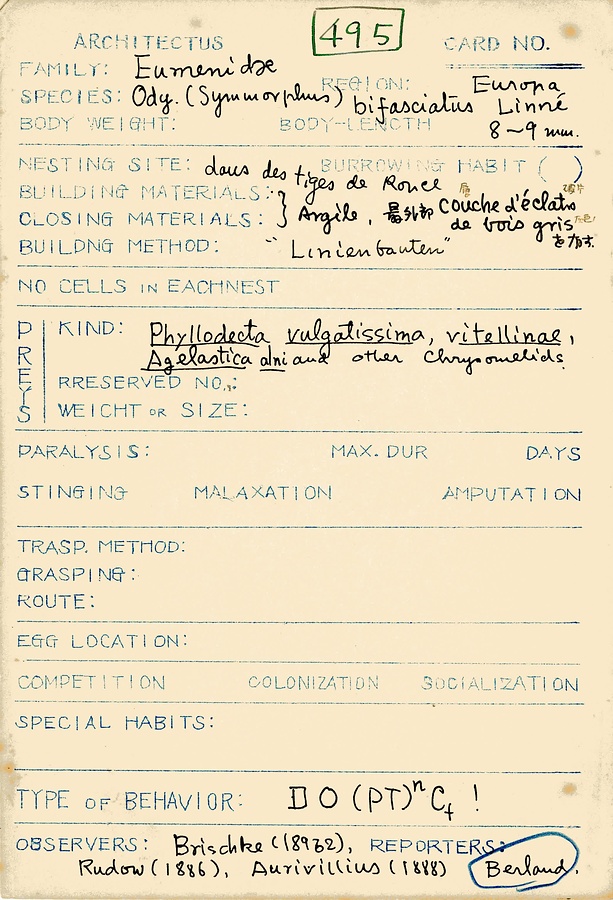 495
ARCHITECTUS CARD NO.
FAMILY: Eumenidae
REGION: Europa
SPECIES: Ody. (Symmorphus) bifasciatus Linné
BODY WEIGHT: BODY-LENGTH 8~9 mm.
NESTING SITE: dans des tiges de Ronce BURROWING HABIT ( )
BUILDING MATERIALS:
CLOSING MATERIALS: } Argile, 最外部 couche d'éclats
de bois gris
BUILDNG METHOD: "Linienbauten"
NO CELLS IN EACHNEST
PREYS
KIND: Phyllodecta vulgatissima, vitellinae,
Agelastica alni and other Chrysomelids.
RRESERVED NO.:
WEICHT OR SIZE:
PARALYSIS: MAX. DUR DAYS
STINGING MALAXATION AMPUTATION
TRASP. METHOD:
GRASPING:
ROUTE:
EGG LOCATION:
COMPETITION COLONIZATION SOCIALIZATION
SPECIAL HABITS:
TYPE OF BEHAVIOR: I O (PT)ⁿ C₄ !
OBSERVERS: Brischke REPORTERS:
Rudow (1886), Aurivillius (1888) Berland.